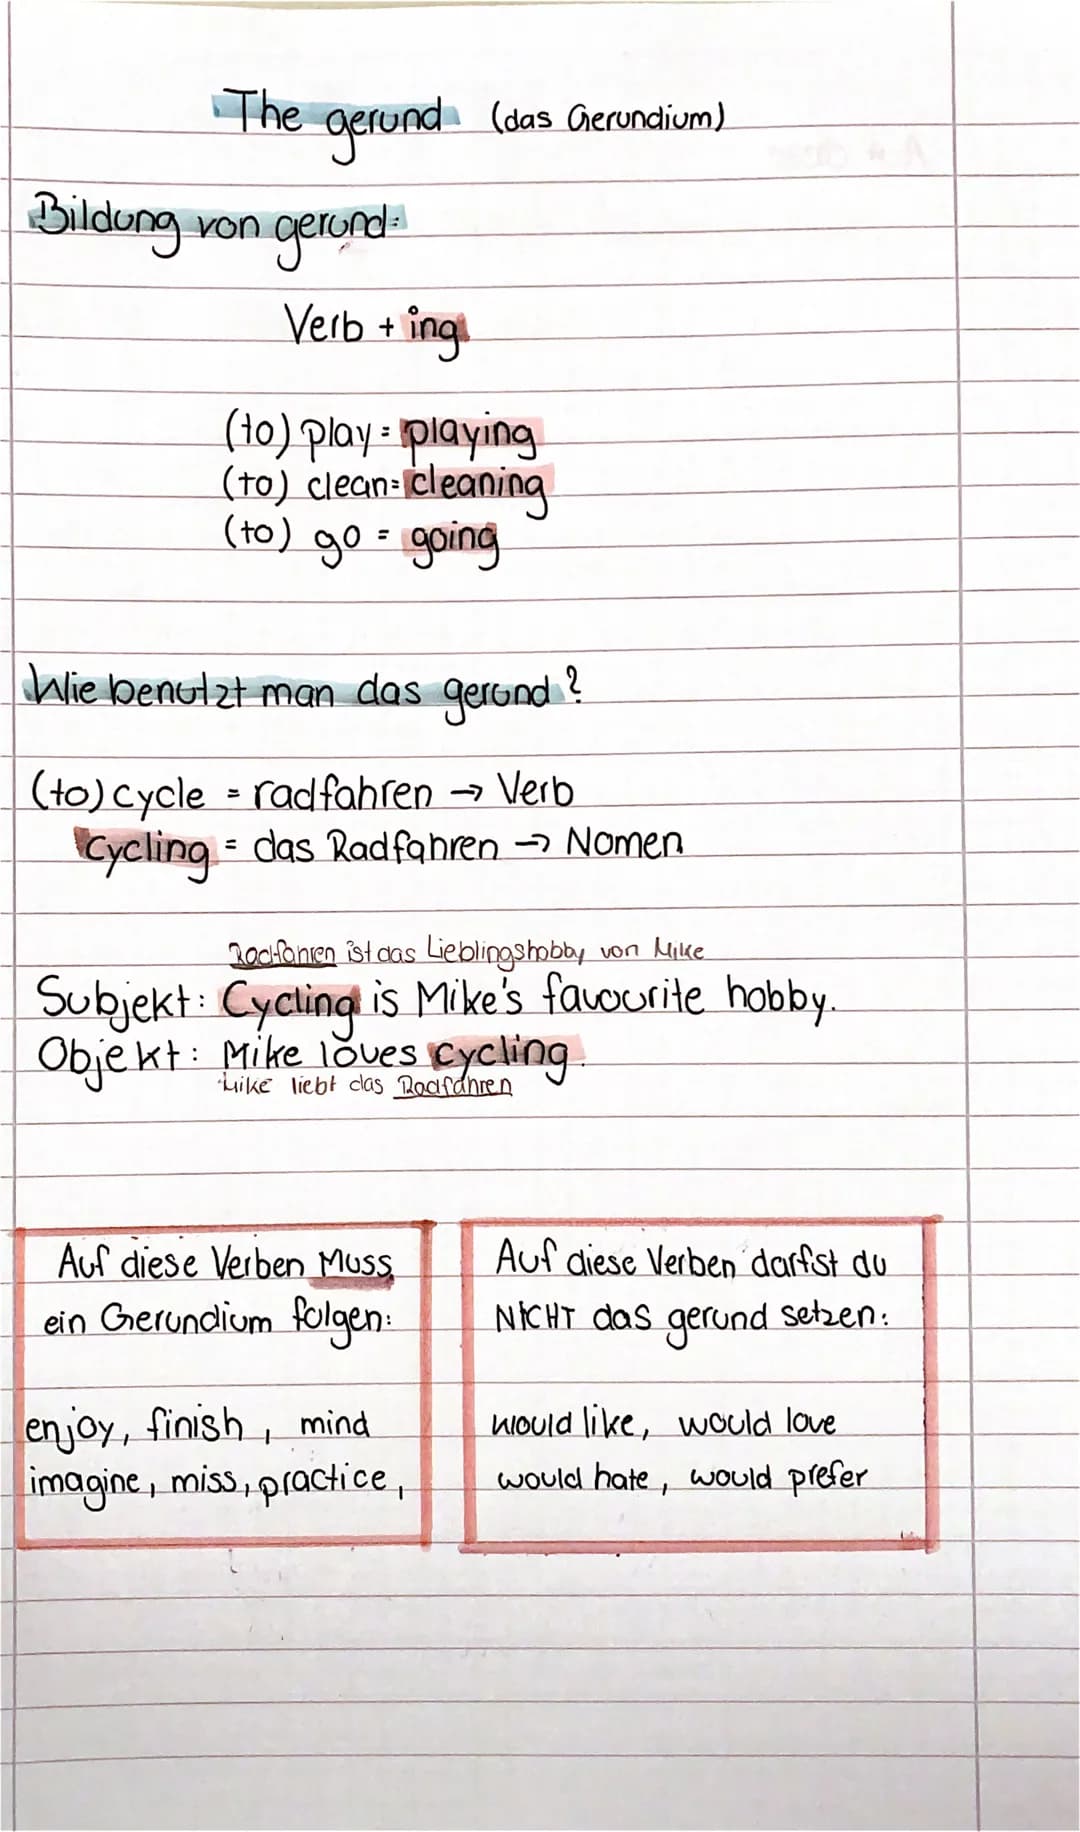 The gerund (das Gerundium)
Bildung von gerund:
Verb + ing
(to) play = playing
(to) clean = cleaning
(to) go = going
Wie benutzt man das gerund?
(to) cycle = radfahren → Verb
Cycling = das Radfahren → Nomen
Radfahren ist das Lieblingshobby von Mike
Subjekt: Cycling is Mike's favourite hobby.
Objekt: Mike loves cycling.
Mike liebt das Radfahren
Auf diese Verben Muss
ein Gerundium folgen:
enjoy, finish, mind
imagine, miss, practice,
Auf diese Verben darfst du
NICHT das gerund setzen:
would like, would love
would hate, would prefer